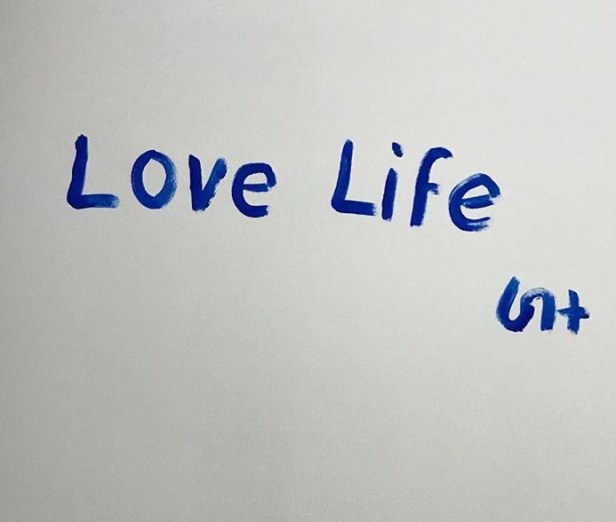 Love Life